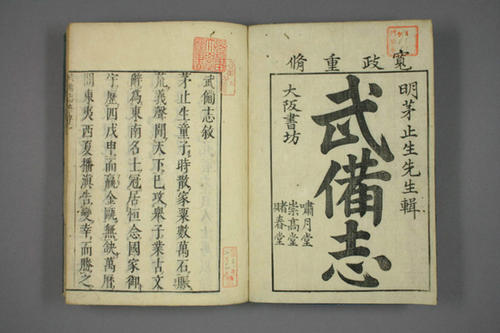 寬政重脩
明茅止生先生輯
武備志
嘯月堂
崇高堂
春堂
大阪書坊
武備志敘
茅止生童子時散家粟數萬石賑
荒義聲聞天下已攻舉子業古文
辭為東南名士冠居恒念國家御
宇歷四戊申而贏金甌無缺萬曆
間東夷西夏播滇告變幸而勝之